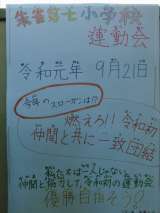 朱雀第七小学校
運動会
令和元年 9月21日
今年のスローガンは!?
燃えろ!!令和初
仲間と共に一致団結
仲間と協力して、令和初の運動会
優勝目指そう!!